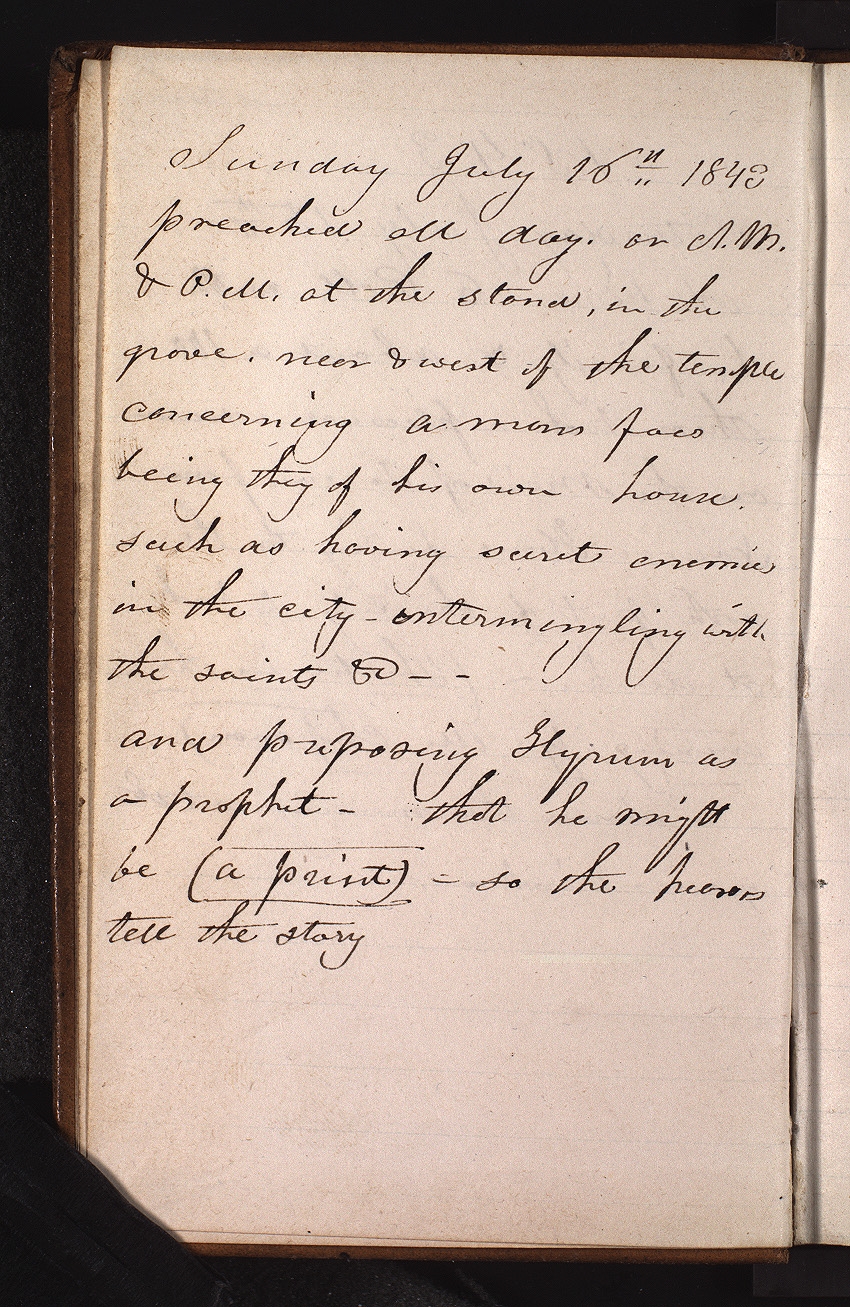 Sunday July 16th 1843
preached all day. or A.M.
& P.M. at the stand, in the
grove. near & west of the temple
concerning a mans foes
being they of his own house.
such as having secret enemies
in the city - intermingling with
the saints &c - -
and proposing Hyrum as
a prophet - that he might
be (a priest) - so the hearers
tell the story